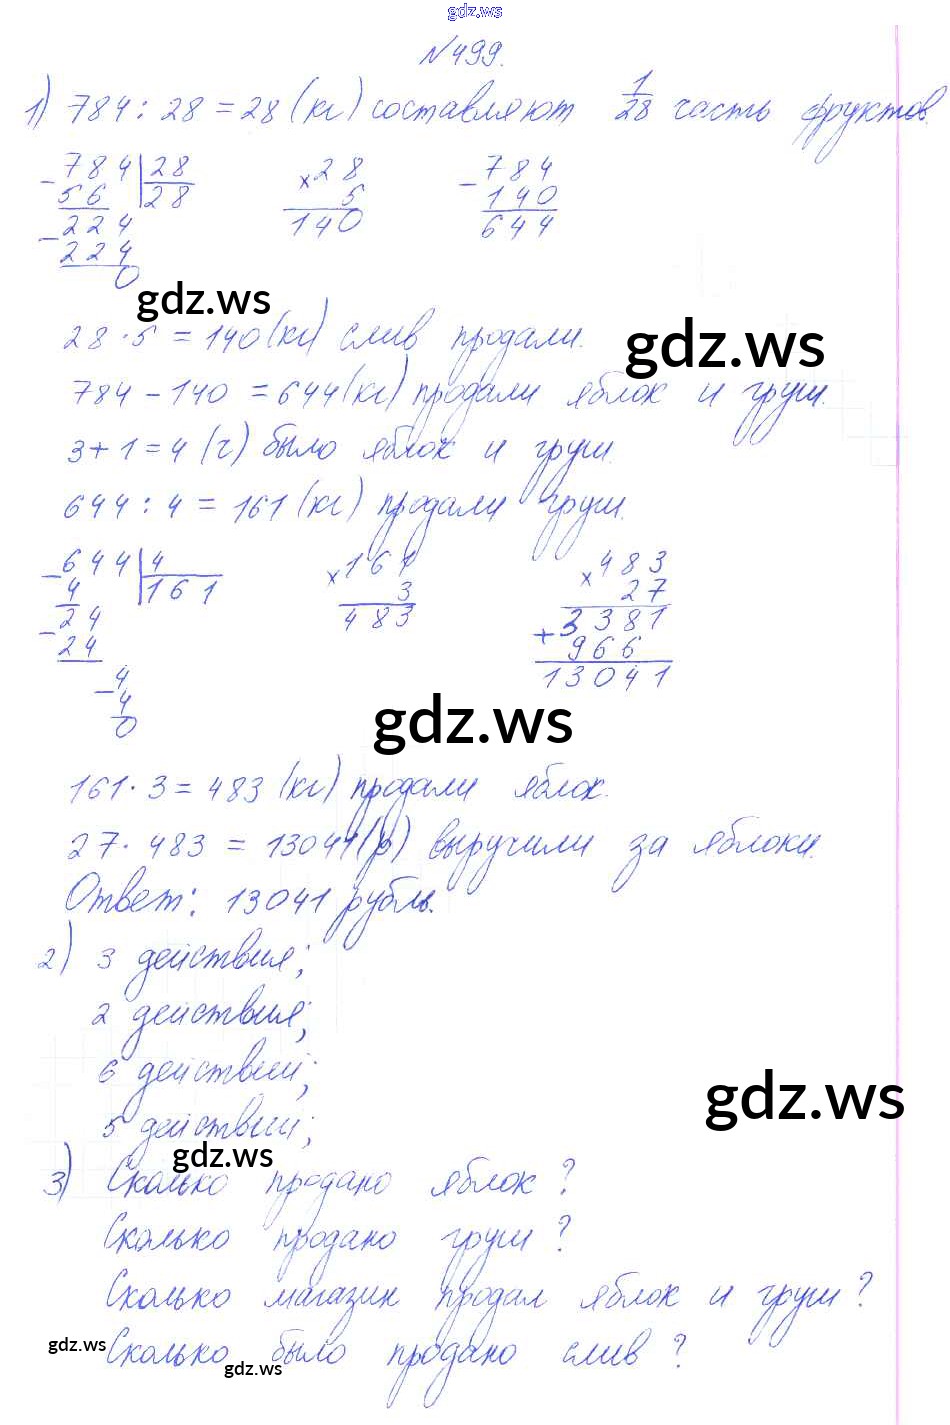 gdz.ws
№499.
1) 784 : 28 = 28 (кг) составляют 1/28 часть фруктов.
- 784 | 28
56 | 28
- 224
224
0
× 28
5
140
- 784
140
644
gdz.ws
28 · 5 = 140 (кг) слив продали.
gdz.ws
784 - 140 = 644 (кг) продали яблок и груш.
3 + 1 = 4 (ч) было яблок и груш.
644 : 4 = 161 (кг) продали груш.
- 644 | 4
4 | 161
- 24
24
- 4
4
0
× 161
3
483
× 483
27
+ 3381
966
13041
gdz.ws
161 · 3 = 483 (кг) продали яблок.
27 · 483 = 13041 (р) выручили за яблоки.
Ответ: 13041 рубль.
2) 3 действия;
2 действия;
6 действий;
5 действий;
gdz.ws
gdz.ws
3) Сколько продано яблок?
Сколько продано груш?
Сколько магазин продал яблок и груш?
gdz.ws
Сколько было продано слив?
gdz.ws